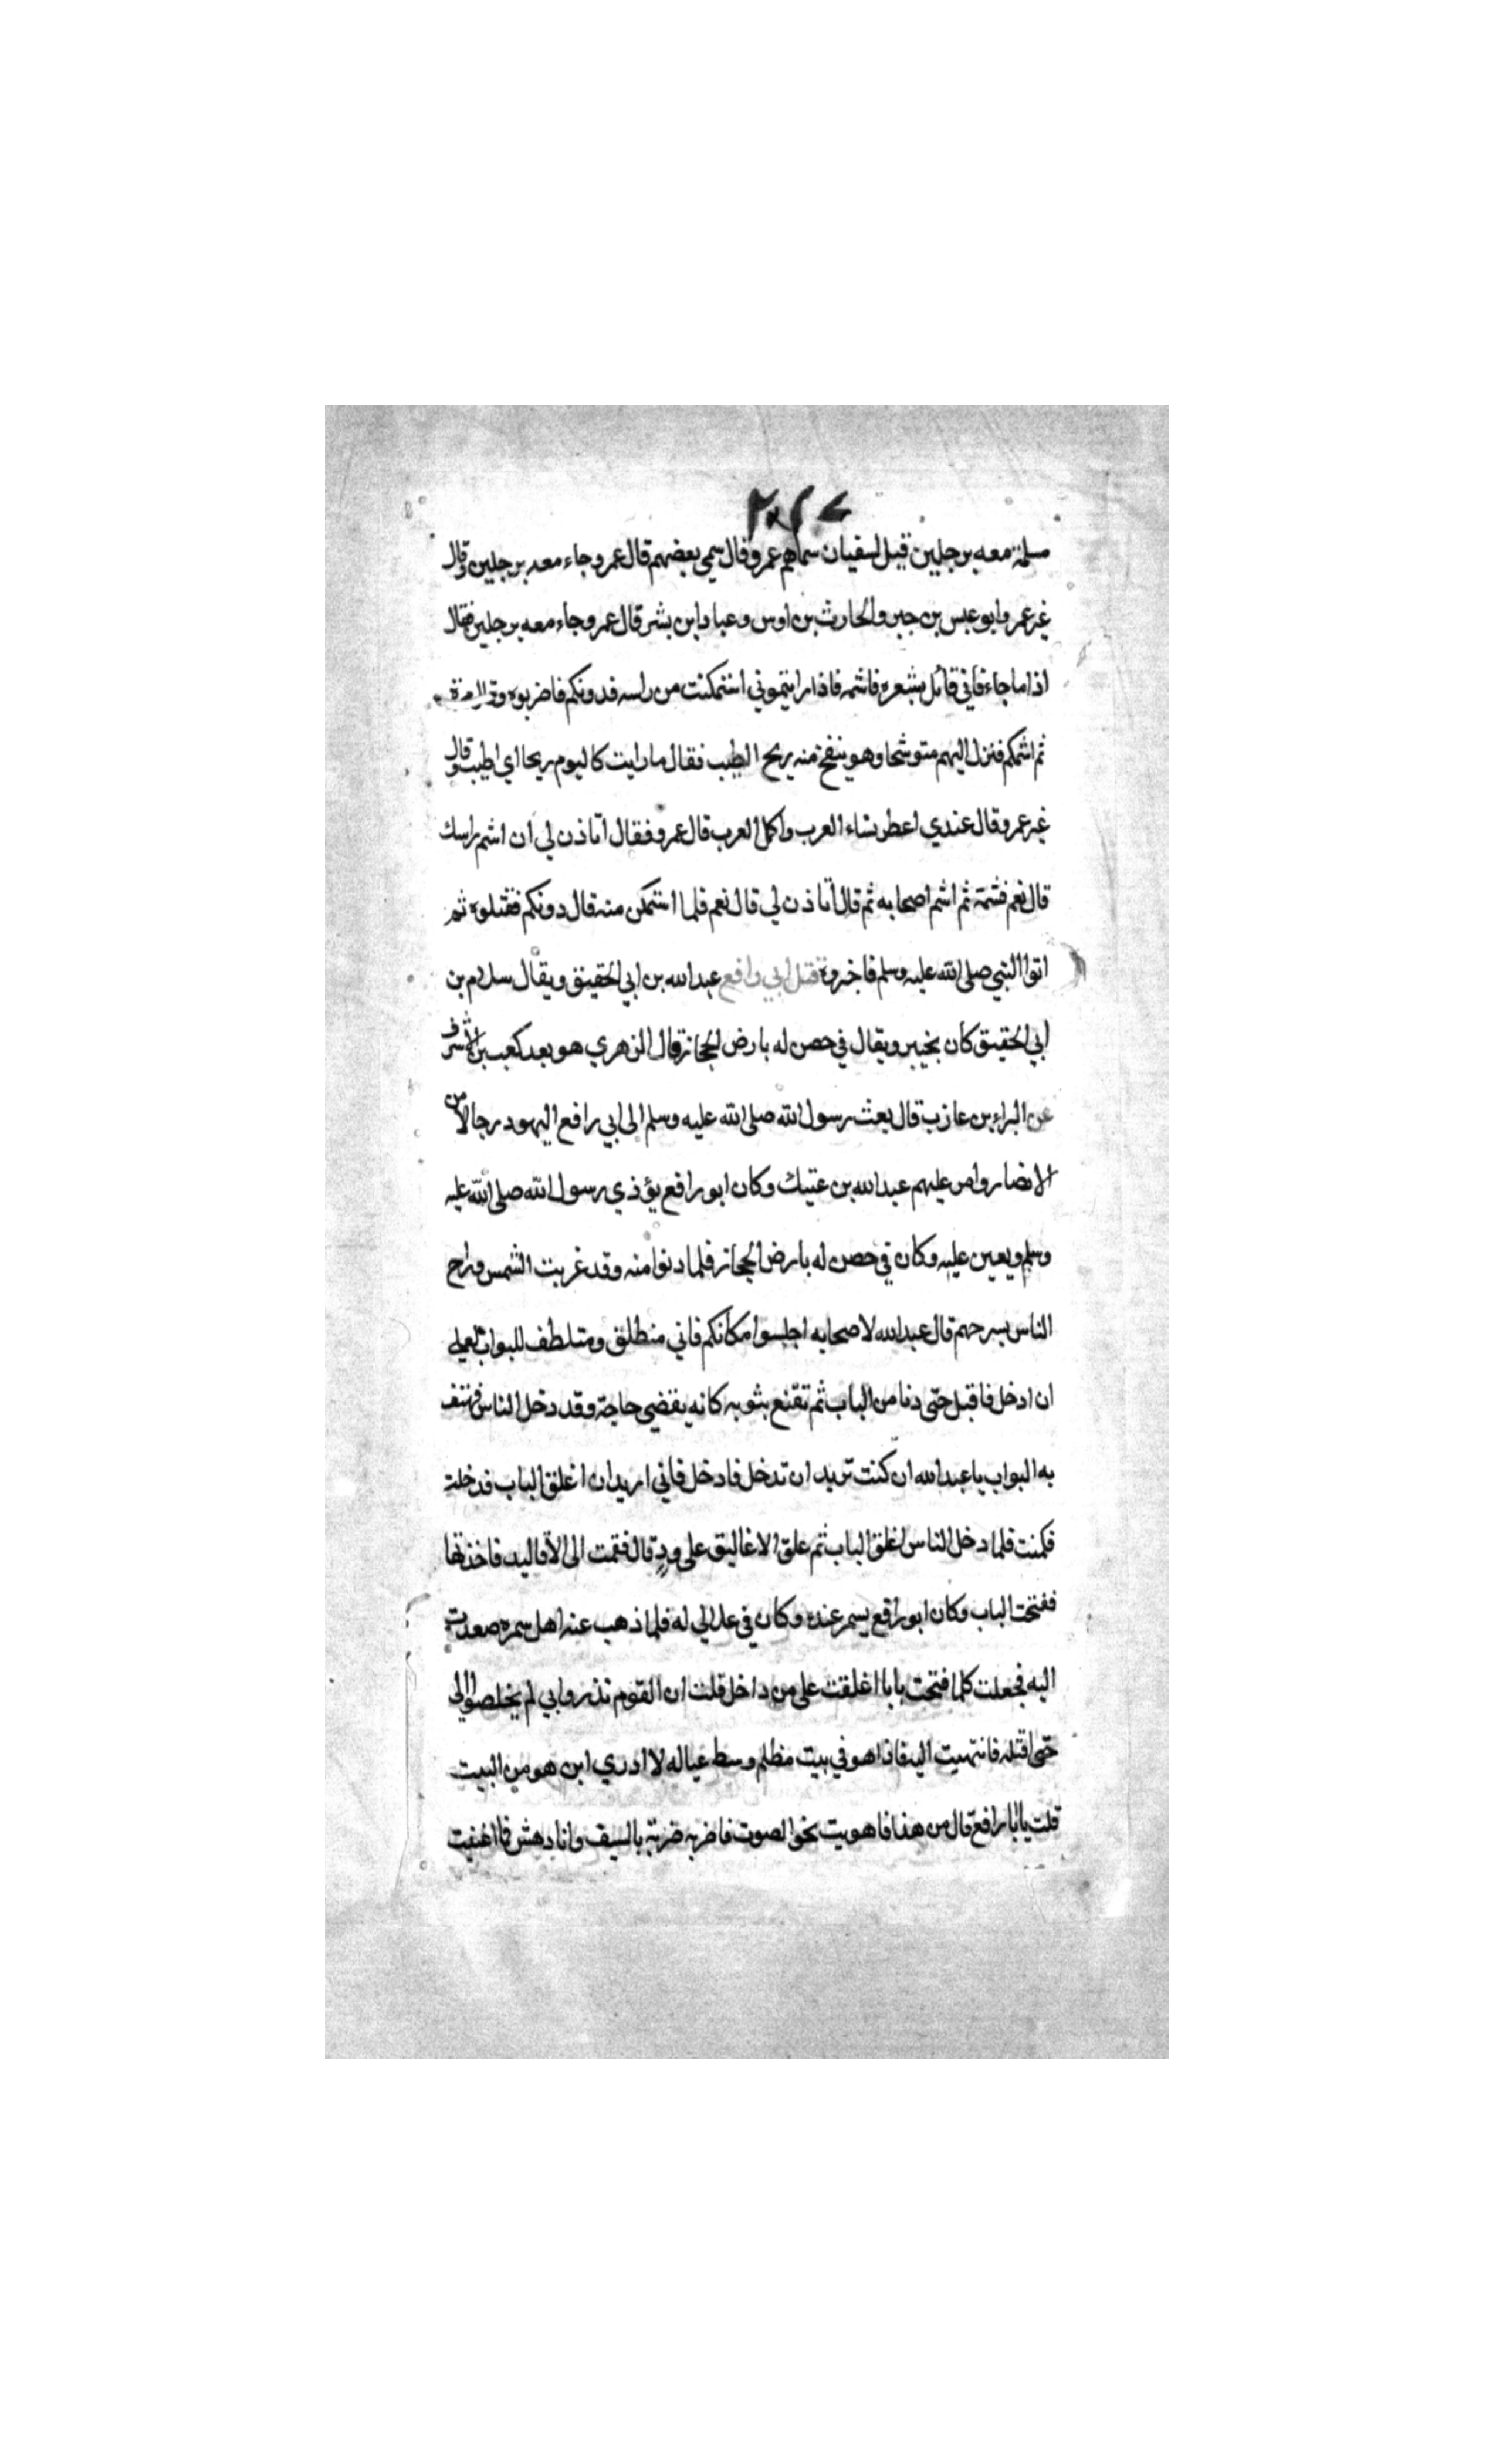 مسلمة معه برجلين قيل لسفيان سماهم عمرو قال سمي بعضهم قال عمرو جاء معه برجلين وقال
غير عمرو ابو عبس بن جبر والحارث بن اوس وعباد ابن بشر قال عمرو جاء معه برجلين فقال
اذا ما جاء فاني قائل بشعره فاشمه فاذا رايتموني استمكنت من راسه فدونكم فاضربوه وقال مرة
ثم اشمكم فنزل اليهم متوشحا وهو ينفح منه ريح الطيب فقال ما رايت كاليوم ريحا اي اطيب وقال
غير عمرو قال عندي اعطر نساء العرب واكمل العرب قال عمرو فقال اتاذن لي ان اشم راسك
قال نعم فشمه ثم اشم اصحابه ثم قال اتاذن لي قال نعم فلما استمكن منه قال دونكم فقتلوه ثم
اتوا النبي صلى الله عليه وسلم فاخبروه قتل ابي رافع عبد الله بن ابي الحقيق ويقال سلام بن
ابي الحقيق كان بخيبر ويقال في حصن له بارض الحجاز وقال الزهري هو بعد كعب بن الاشرف
عن البراء بن عازب قال بعث رسول الله صلى الله عليه وسلم الى ابي رافع اليهود رجالا من
الانصار وامر عليهم عبد الله بن عتيك وكان ابو رافع يؤذي رسول الله صلى الله عليه
وسلم ويعين عليه وكان في حصن له بارض الحجاز فلما دنوا منه وقد غربت الشمس وراح
الناس بسرحهم قال عبد الله لاصحابه اجلسوا مكانكم فاني منطلق ومتلطف للبواب لعلي
ان ادخل فاقبل حتى دنا من الباب ثم تقنع بثوبه كانه يقضي حاجة وقد دخل الناس فهتف
به البواب يا عبد الله ان كنت تريد ان تدخل فادخل فاني اريد ان اغلق الباب فدخلت
فكمنت فلما دخل الناس اغلق الباب ثم علق الاغاليق على ود قال فقمت الى الاقاليد فاخذتها
ففتحت الباب وكان ابو رافع يسمر عنده وكان في علالي له فلما ذهب عنه اهل سمره صعدت
اليه فجعلت كلما فتحت بابا اغلقت علي من داخل قلت ان القوم نذروا بي لم يخلصوا الي
حتى اقتله فانتهيت اليه فاذا هو في بيت مظلم وسط عياله لا ادري اين هو من البيت
قلت يا ابا رافع قال من هذا فاهويت نحو الصوت فاضربه ضربة بالسيف وانا دهش فما اغنيت